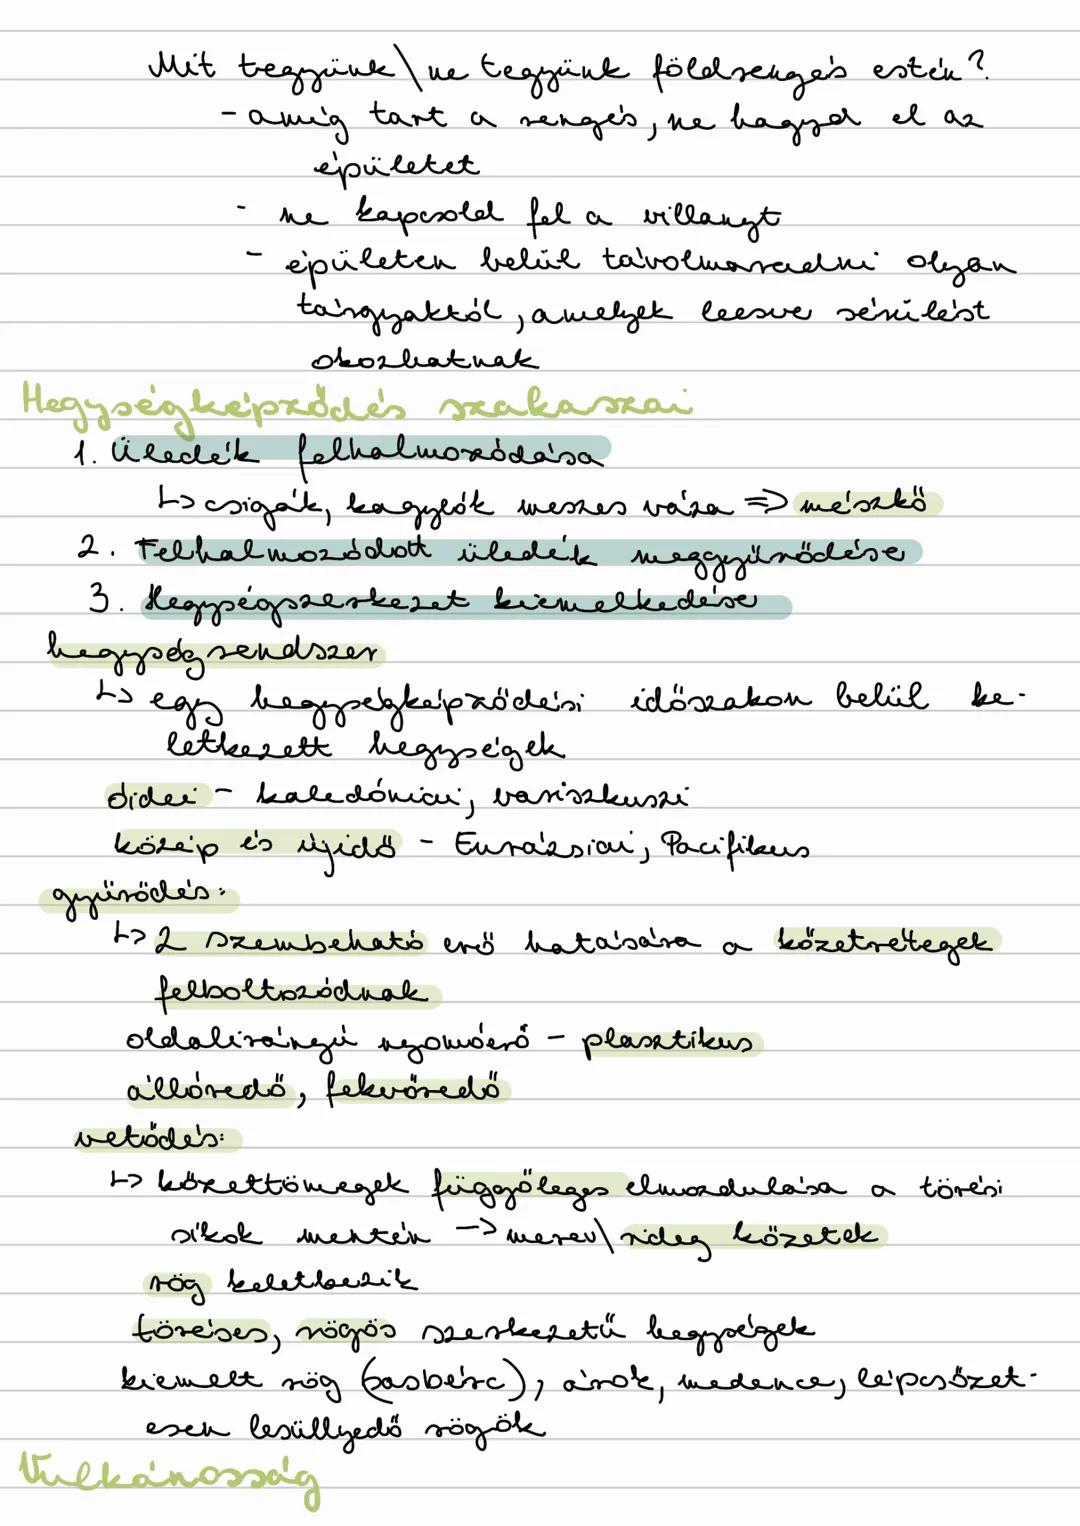 Mit tegyünk\ne tegyünk földrengés estén?
- amíg tart a rengés, ne hagyd el az
épületet
- ne kapcsold fel a villanyt
- épületen belül távolmaradni olyan
tárgyaktól, amelyek leesve sérülést
okozhatnak
Hegységképződés szakaszai
1. Üledék felhalmozódása
↳ csigák, kagylók meszes váza => mészkő
2. Felhalmozódott üledék meggyűrődése
3. Hegységszerkezet kiemelkedése
hegységrendszer
↳ egy hegységképződési időszakon belül ke-
letkezett hegységek
óidei - kaledóniai, variszkuszi
közép és újidő - Eurázsiai, Pacifikus
gyűrődés:
↳ 2 szembeható erő hatására a kőzetrétegek
felboltozódnak
oldalirányú nyomóerő - plasztikus
állóredő, fekvőredő
vetődés:
↳ kőzettömegek függőleges elmozdulása a törési
síkok mentén -> merev\rideg kőzetek
rög keletkezik
töréses, rögös szerkezetű hegységek
kiemelt rög (sasbérc), árok, medence, lépcsőzet-
esen lesüllyedő rögök
Vulkánosság